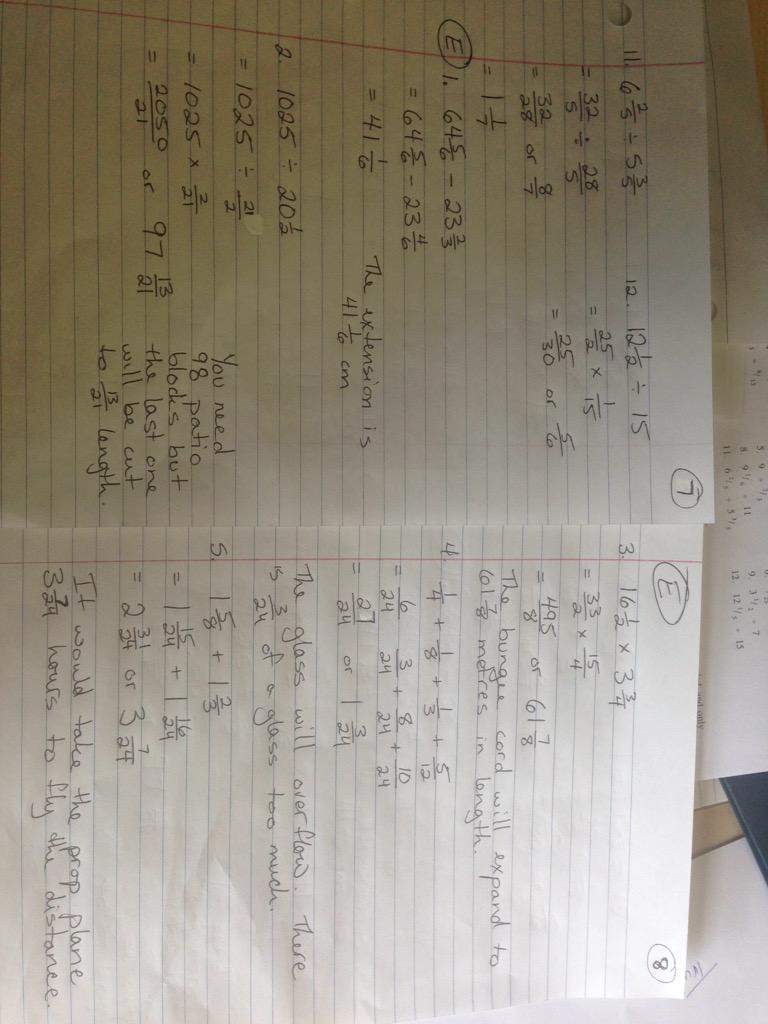 7
11. 6 2/5 ÷ 5 3/5
= 32/5 ÷ 28/5
= 32/28 or 8/7
= 1 1/7
12. 12 1/2 ÷ 15
= 25/2 × 1/15
= 25/30 or 5/6
E
1. 64 5/6 - 23 2/3
= 64 5/6 - 23 4/6
= 41 1/6
The extension is
41 1/6 cm
2. 1025 ÷ 20 1/2
= 1025 ÷ 21/2
= 1025 × 2/21
= 2050/21 or 97 13/21
You need
98 patio
blocks but
the last one
will be cut
to 13/21 length.
8
E
3. 16 1/2 × 3 3/4
= 33/2 × 15/4
= 495/8 or 61 7/8
The bungee cord will expand to
61 7/8 metres in length.
4. 1/4 + 1/8 + 1/3 + 5/12
= 6/24 3/24 + 8/24 + 10/24
= 27/24 or 1 3/24
The glass will overflow. There
is 3/24 of a glass too much.
5. 1 5/8 + 1 2/3
= 1 15/24 + 1 16/24
= 2 31/24 or 3 7/24
It would take the prop plane
3 7/24 hours to fly the distance.
8. 9 1/6 ÷ 11
9. 3 1/2 ÷ 7
11. 6 2/5 ÷ 5 3/5
12. 12 1/2 ÷ 15